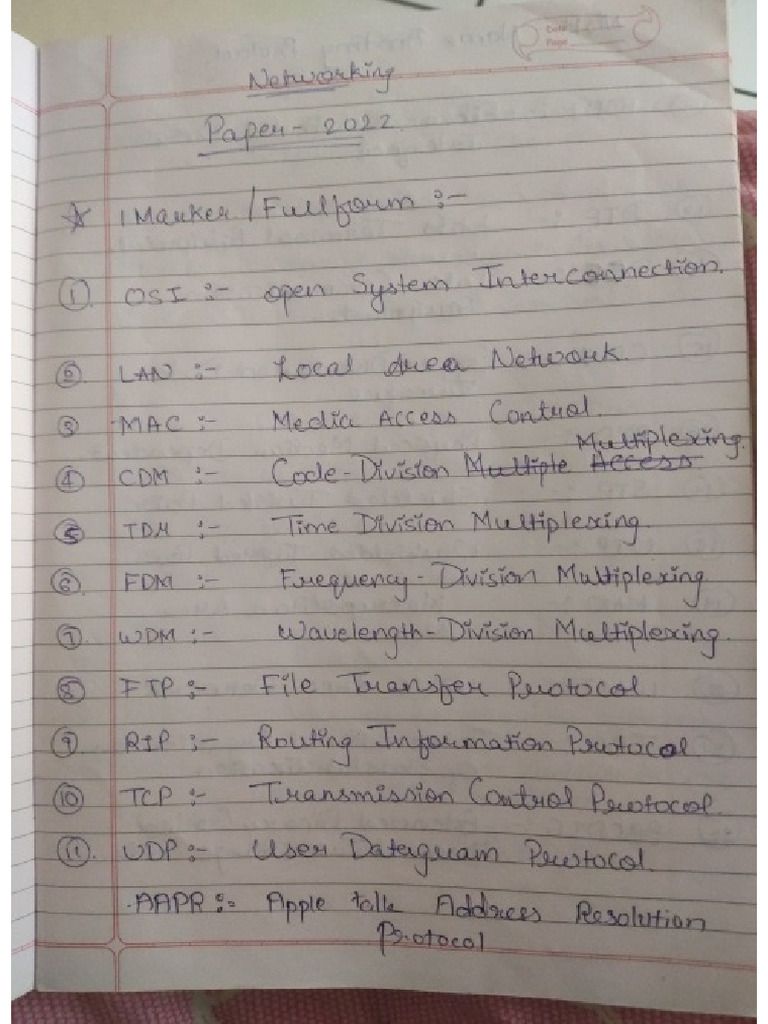 Date
Page
Networking
Paper - 2022.
☆ 1 Marker / Fullform :-
① OSI :- open System Interconnection.
② LAN :- Local Area Network.
③ MAC :- Media Access Control.
Multiplexing.
④ CDM :- Code-Division Multiple Access
⑤ TDM :- Time Division Multiplexing.
⑥ FDM :- Frequency-Division Multiplexing
⑦ WDM :- Wavelength-Division Multiplexing.
⑧ FTP :- File Transfer Protocol
⑨ RIP :- Routing Information Protocol
⑩ TCP :- Transmission Control Protocol.
⑪. UDP :- User Datagram Protocol.
·AAPR :- Apple talk Address Resolution
Protocol